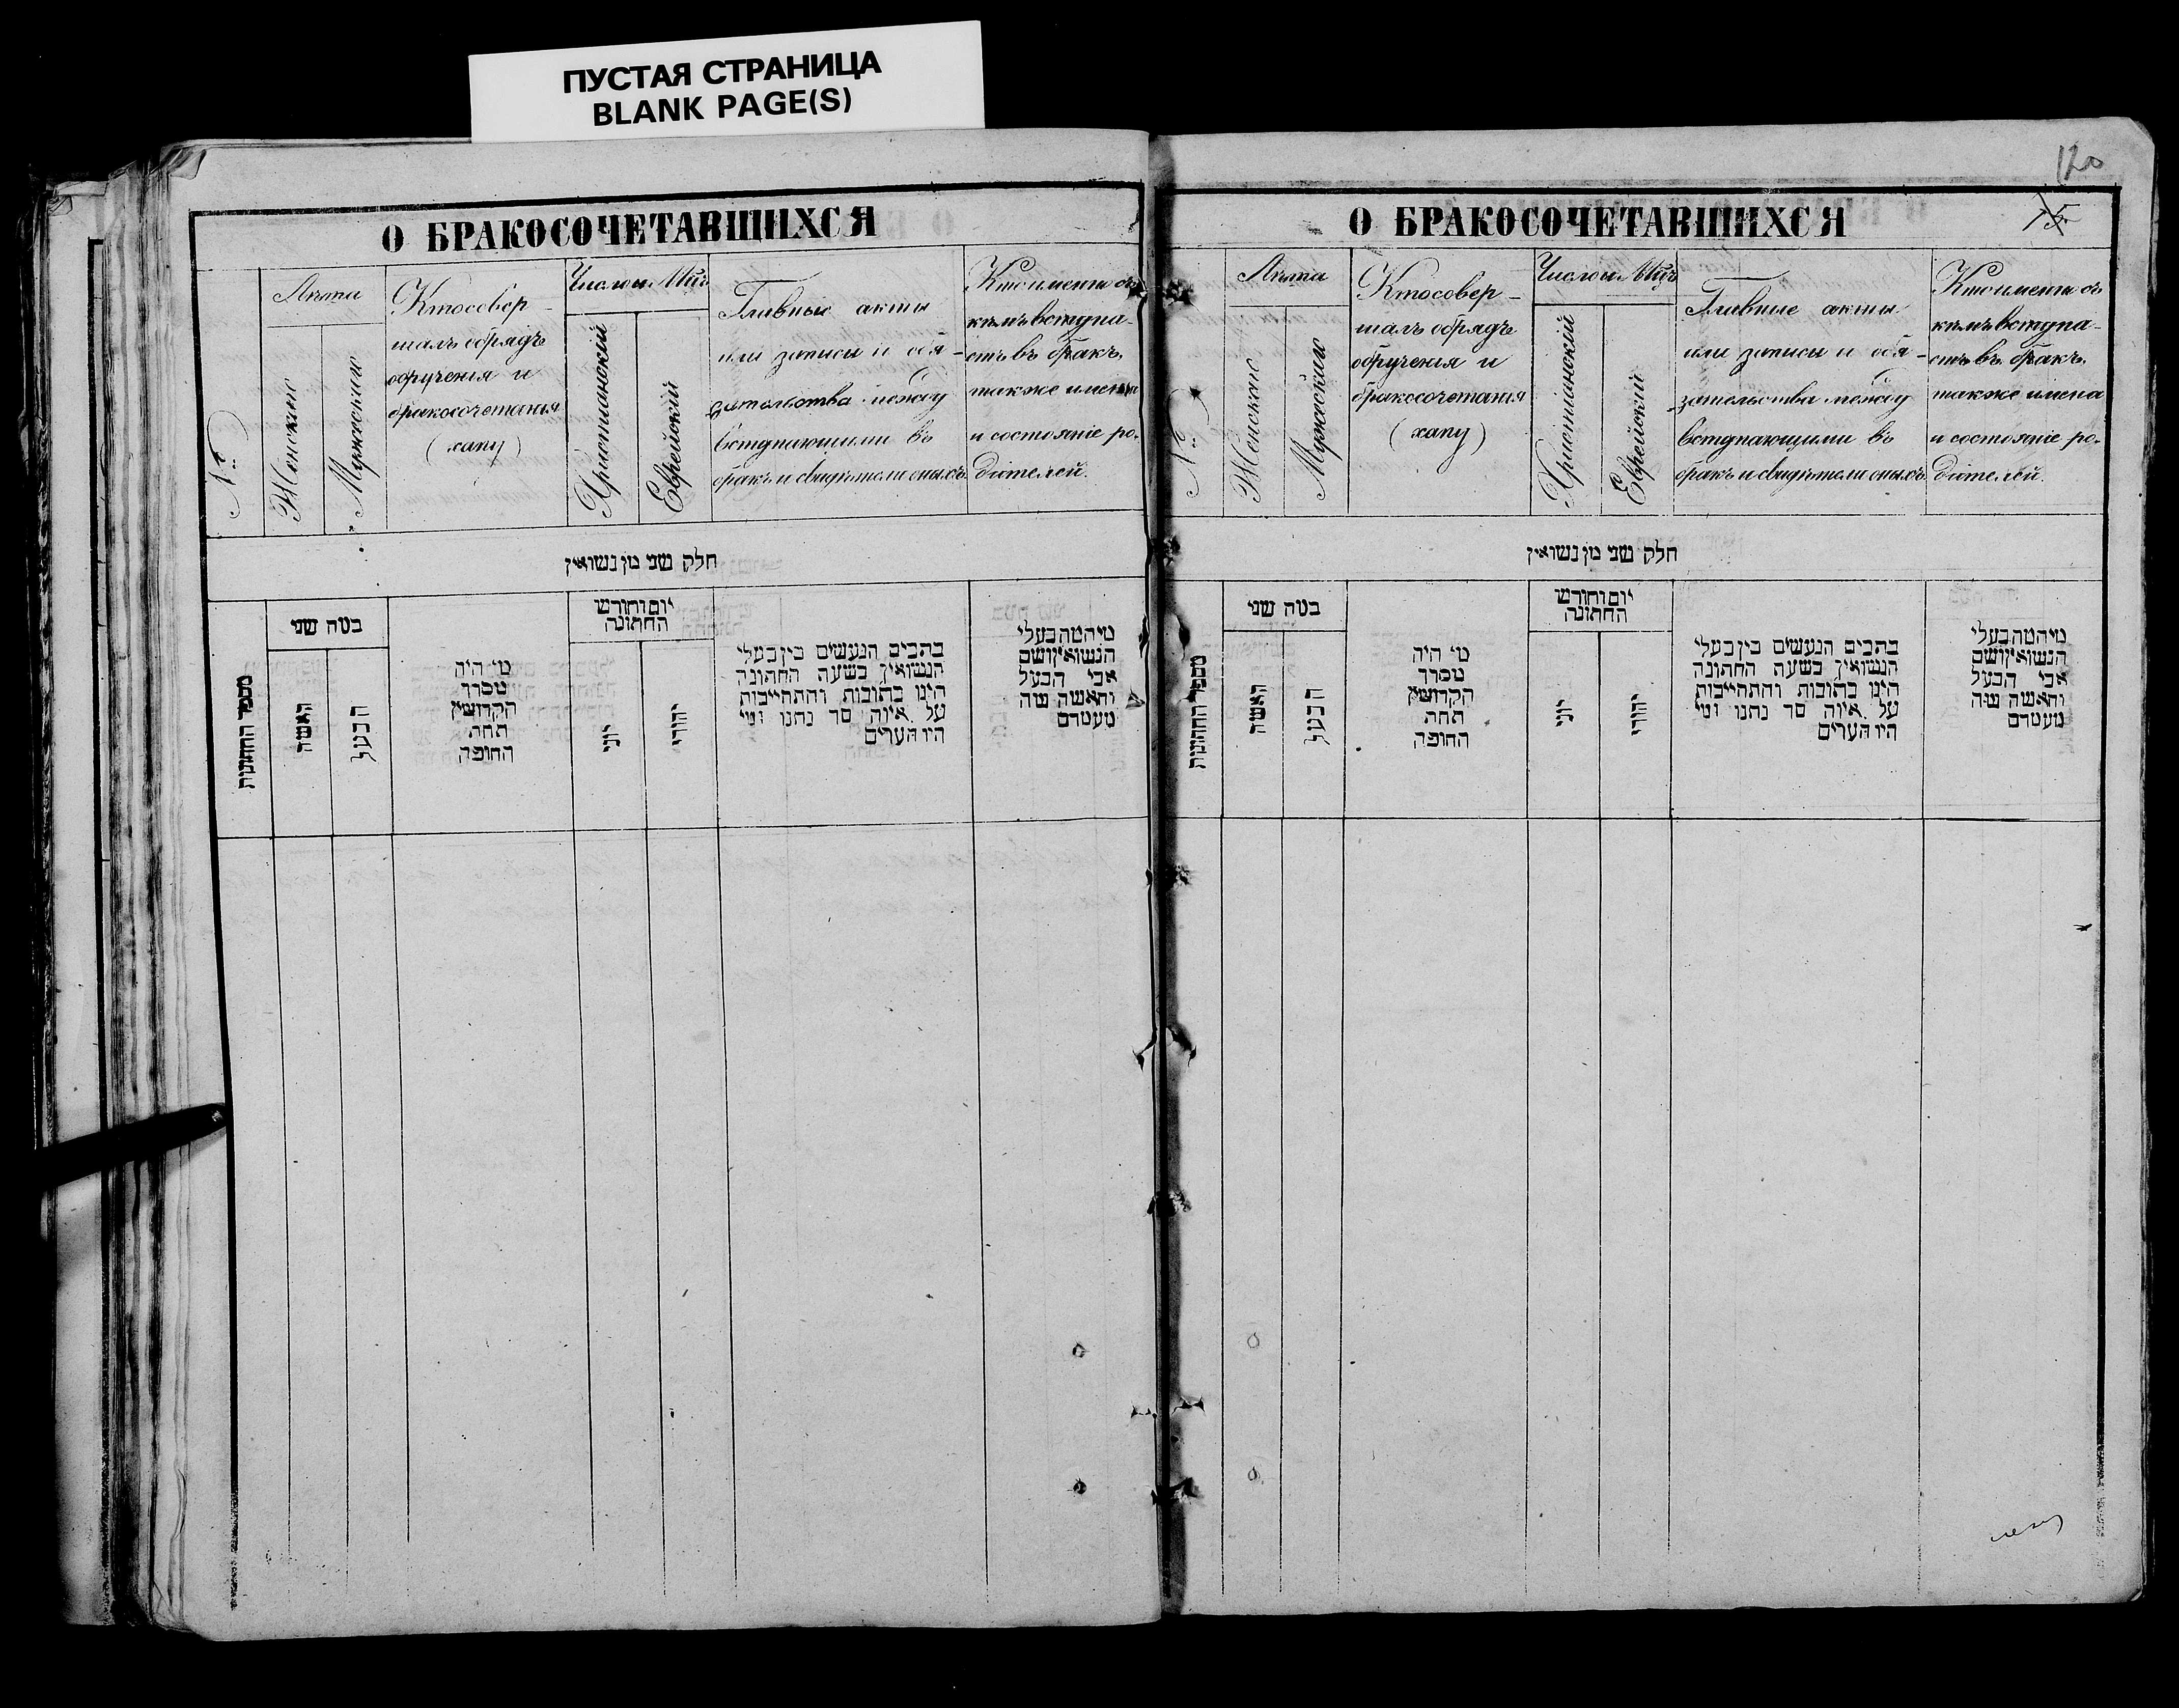 ПУСТАЯ СТРАНИЦА
BLANK PAGE(S)
120
15.
О БРАКОСОЧЕТАВШИХСЯ
№
Лѣта
Женскаго
Мужескаго
Кто совер-
шалъ обрядъ
обрученія и
бракосочетанія
(хапу)
Число и Мѣц.
Христіанскій
Еврейскій
Главные акты
или записи и обя-
зательства между
вступающими въ
бракъ и свидѣтели оныхъ.
Кто именно съ
кѣмъ вступа-
етъ въ бракъ,
также имена
и состояніе ро-
дителей.
חלק שני מן נשואין
מספר החתונות
במה שני
האשה
הבעל
מי היה
מסדר
הקדושין
תחת
החופה
יום וחודש
החתונה
יוני
יהודי
כתבים הנעשים בין בעלי
הנשואין בשעת החתונה
היינו כתובות והתחייבות
על איזה סך נתנו ומי
היו העדים
מי המה בעלי
הנשואין ושם
אבי הבעל
והאשה ומה
מעמדם
О БРАКОСОЧЕТАВШИХСЯ
№
Лѣта
Женскаго
Мужескаго
Кто совер-
шалъ обрядъ
обрученія и
бракосочетанія
(хапу)
Число и Мѣц.
Христіанскій
Еврейскій
Главные акты
или записи и обя-
зательства между
вступающими въ
бракъ и свидѣтели оныхъ.
Кто именно съ
кѣмъ вступа-
етъ въ бракъ,
также имена
и состояніе ро-
дителей.
חלק שני מן נשואין
מספר החתונות
במה שני
האשה
הבעל
מי היה
מסדר
הקדושין
תחת
החופה
יום וחודש
החתונה
יוני
יהודי
כתבים הנעשים בין בעלי
הנשואין בשעת החתונה
היינו כתובות והתחייבות
על איזה סך נתנו ומי
היו העדים
מי המה בעלי
הנשואין ושם
אבי הבעל
והאשה ומה
מעמדם